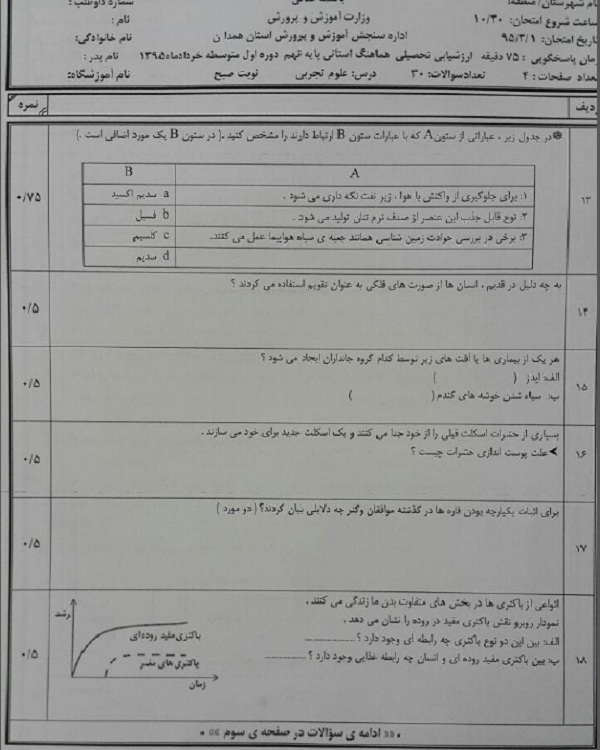 نام شهرستان/منطقه:
شماره داوطلب:
ساعت شروع امتحان: ۱۰/۳۰
وزارت آموزش و پرورش
نام:
تاریخ امتحان: ۹۵/۳/۱
اداره سنجش آموزش و پرورش استان همدان
نام خانوادگی:
زمان پاسخگویی: ۷۵ دقیقه
ارزشیابی تحصیلی هماهنگ استانی پایه نهم دوره اول متوسطه خردادماه ۱۳۹۵
نام پدر:
تعداد صفحات: ۴
تعداد سوالات: ۳۰
درس: علوم تجربی
نوبت صبح
نام آموزشگاه:
ردیف
نمره
۱۳
در جدول زیر، عباراتی از ستون A که با عبارات ستون B ارتباط دارند را مشخص کنید.( در ستون B یک مورد اضافی است.)
۰/۷۵
A
B
۱: برای جلوگیری از واکنش با هوا، زیر نفت نگه داری می شود.
a سدیم اکسید
۲: نوع قابل جذب این عنصر از صدف نرم تنان تولید می شود.
b فسیل
۳: برخی در بررسی حوادث زمین شناسی همانند جعبه ی سیاه هواپیما عمل می کنند.
c کلسیم
d سدیم
۱۴
به چه دلیل در قدیم، انسان ها از صورت های فلکی به عنوان تقویم استفاده می کردند ؟
۰/۵
۱۵
هر یک از بیماری ها یا آفت های زیر توسط کدام گروه جانداران ایجاد می شود ؟
الف: ایدز ( )
۰/۵
ب: سیاه شدن خوشه های گندم ( )
۱۶
بسیاری از حشرات اسکلت قبلی را از خود جدا می کنند و یک اسکلت جدید برای خود می سازند.
➤ علت پوست اندازی حشرات چیست ؟
۰/۵
۱۷
برای اثبات یکپارچه بودن قاره ها در گذشته موافقان وگنر چه دلایلی بیان کردند؟ ( دو مورد )
۰/۵
۱۸
انواعی از باکتری ها در بخش های متفاوت بدن ما زندگی می کنند،
نمودار روبرو نقش باکتری مفید در روده را نشان می دهد.
الف: بین این دو نوع باکتری چه رابطه ای وجود دارد ؟ ..............
ب: بین باکتری مفید روده ای و انسان چه رابطه غذایی وجود دارد ؟ ..............
۰/۵
رشد
باکتری مفید روده ای
باکتری های مضر
زمان
«« ادامه ی سؤالات در صفحه ی سوم »»